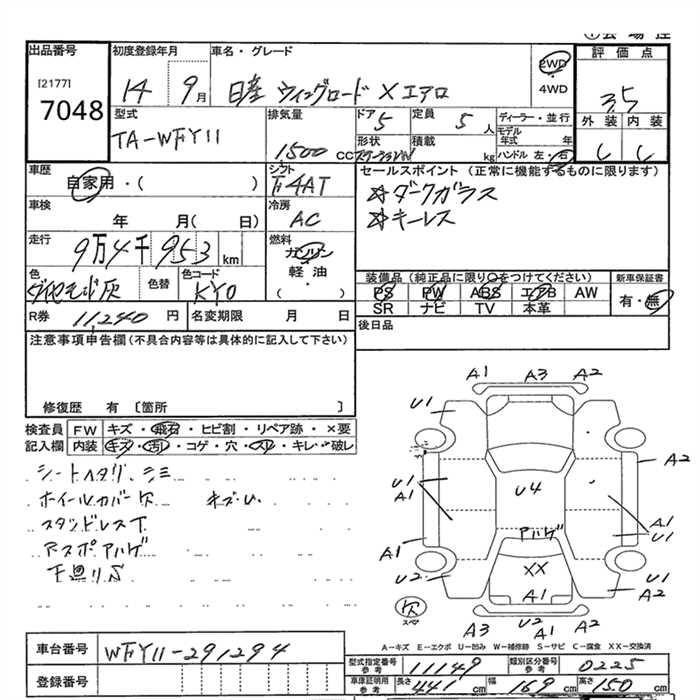 出品番号
[2177]
7048
初度登録年月
14 9月
車名・グレード
日産 ウィングロード X エアロ
2WD
・
4WD
評価点
3.5
外装 内装
C C
型式
TA-WFY11
排気量
1500 CC
ドア 5
形状
ステーションW
定員 5 人
積載 kg
ディーラー・並行
モデル年式 年
ハンドル 左・右
車歴
自家用・( )
シフト
F4AT
セールスポイント (正常に機能するものに限ります)
☆ダークガラス
☆キーレス
車検
年 月( 日)
冷房
AC
走行
9万4千953 km
燃料
ガソリン
軽油
( )
色
ダイヤモンド灰
色替
色コード
KY0
装備品 (純正品に限り○をつけてください)
PS PW ABS エアB AW
SR ナビ TV 本革
新車保証書
有・無
R券 11,240 円
名変期限 月 日
後日品
注意事項申告欄(不具合内容等は具体的に記入して下さい)
修復歴 有 〔箇所 〕
検査員記入欄
FW キズ・飛石・ヒビ割・リペア跡・×要
内装 キズ・汚レ・コゲ・穴・スレ・キレ・破レ
シートヘタリ、シミ
ホイールカバー欠 キズU.
スタッドレスT
下廻りS
A1 A3 A2
U1 A1
A2
U1
A1
U4
A1
U1
アハゲ
A1
U2
XX
A1
U1
A2
欠
スペア
A3 U2 A1 A2
A-キズ E-エクボ U-凹み W-補修跡 S-サビ C-腐食 XX-交換済
車台番号
WFY11-291294
登録番号
型式指定番号
参考
11149
類別区分番号
参考
0225
車庫証明用
参考
長さ 441 cm
幅 169 cm
高さ 150 cm